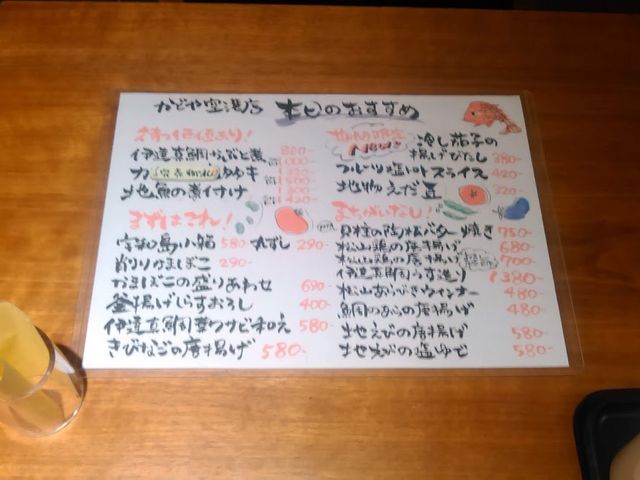 かどや空港店 本日のおすすめ
待つ価値あり!
伊達真鯛かぶと煮
地魚の煮付け
まずはこれ!
宇和島小箱 580 丸ずし 290-
削りかまぼこ 290-
かまぼこの盛りあわせ 690-
釜揚げしらすおろし 400-
伊達真鯛葉ワサビ和え 580-
きびなごの唐揚げ 580-
NEW
冷し茄子の
揚げびたし 380-
フルーツ塩トマトスライス 420
地物えだ豆 320-
まちがいなし!
貝柱の陶板バター焼き 750-
松山鶏の唐揚げ 680-
松山鶏の唐揚げ 700-
伊達真鯛うす造り 1380-
松山あらびきウインナー 480-
鯛のあらの唐揚げ 480-
地えびの唐揚げ 580-
地えびの塩ゆで 580-